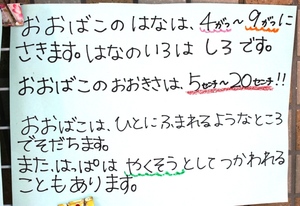 おおばこのはなは、4がつ~9がつに
さきます。はなのいろは しろです。
おおばこのおおきさは、5センチ~20センチ!!
おおばこは、ひとにふまれるようなところ
でそだちます。
また、はっぱは やくそうとしてつかわれる
こともあります。